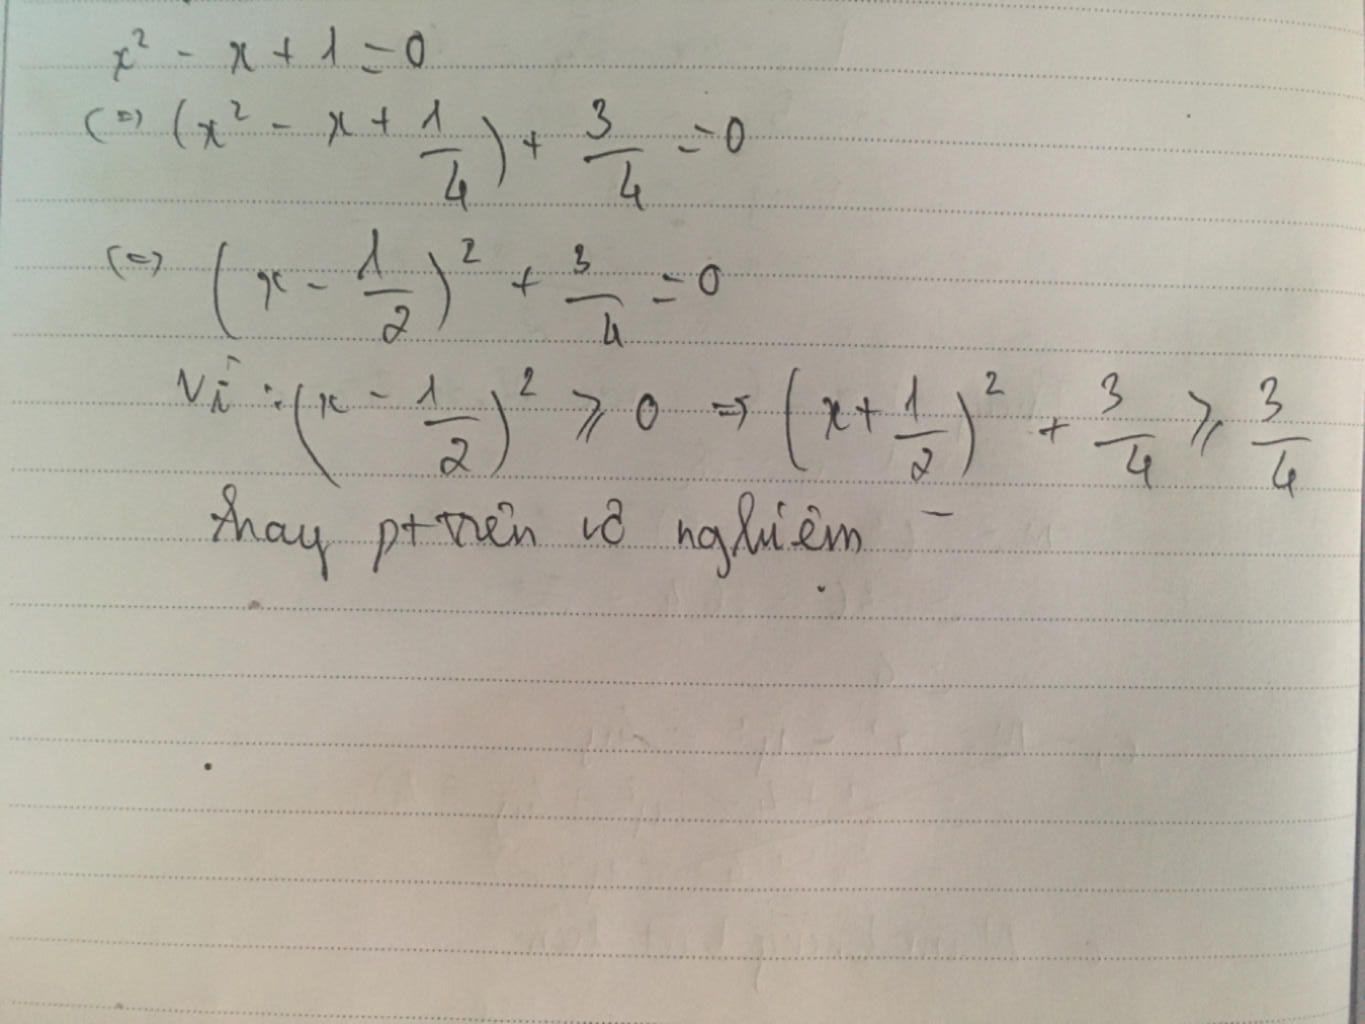 x² - x + 1 = 0
(=) (x² - x + 1/4) + 3/4 = 0
(=) (x - 1/2)² + 3/4 = 0
Vì : (x - 1/2)² ⩾ 0 => (x + 1/2)² + 3/4 ⩾ 3/4
hay pt trên vô nghiệm